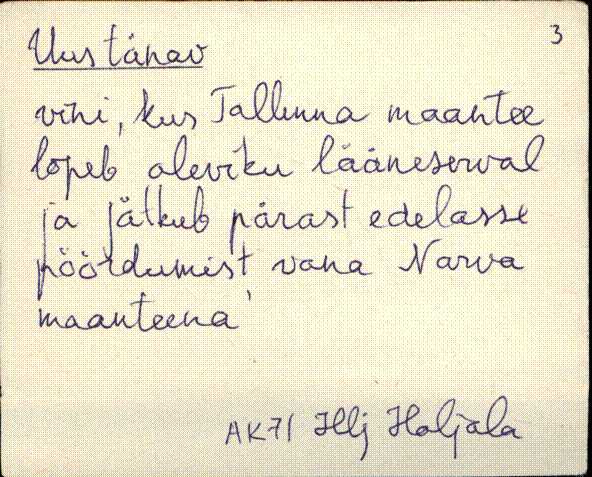 3
Uus tänav
viini, kus Tallinna maantee
lõpeb aleviku lääneserval
ja jätkub pärast edelasse
pöördumist vana Narva
maanteena'
AK71 Hlj Haljala